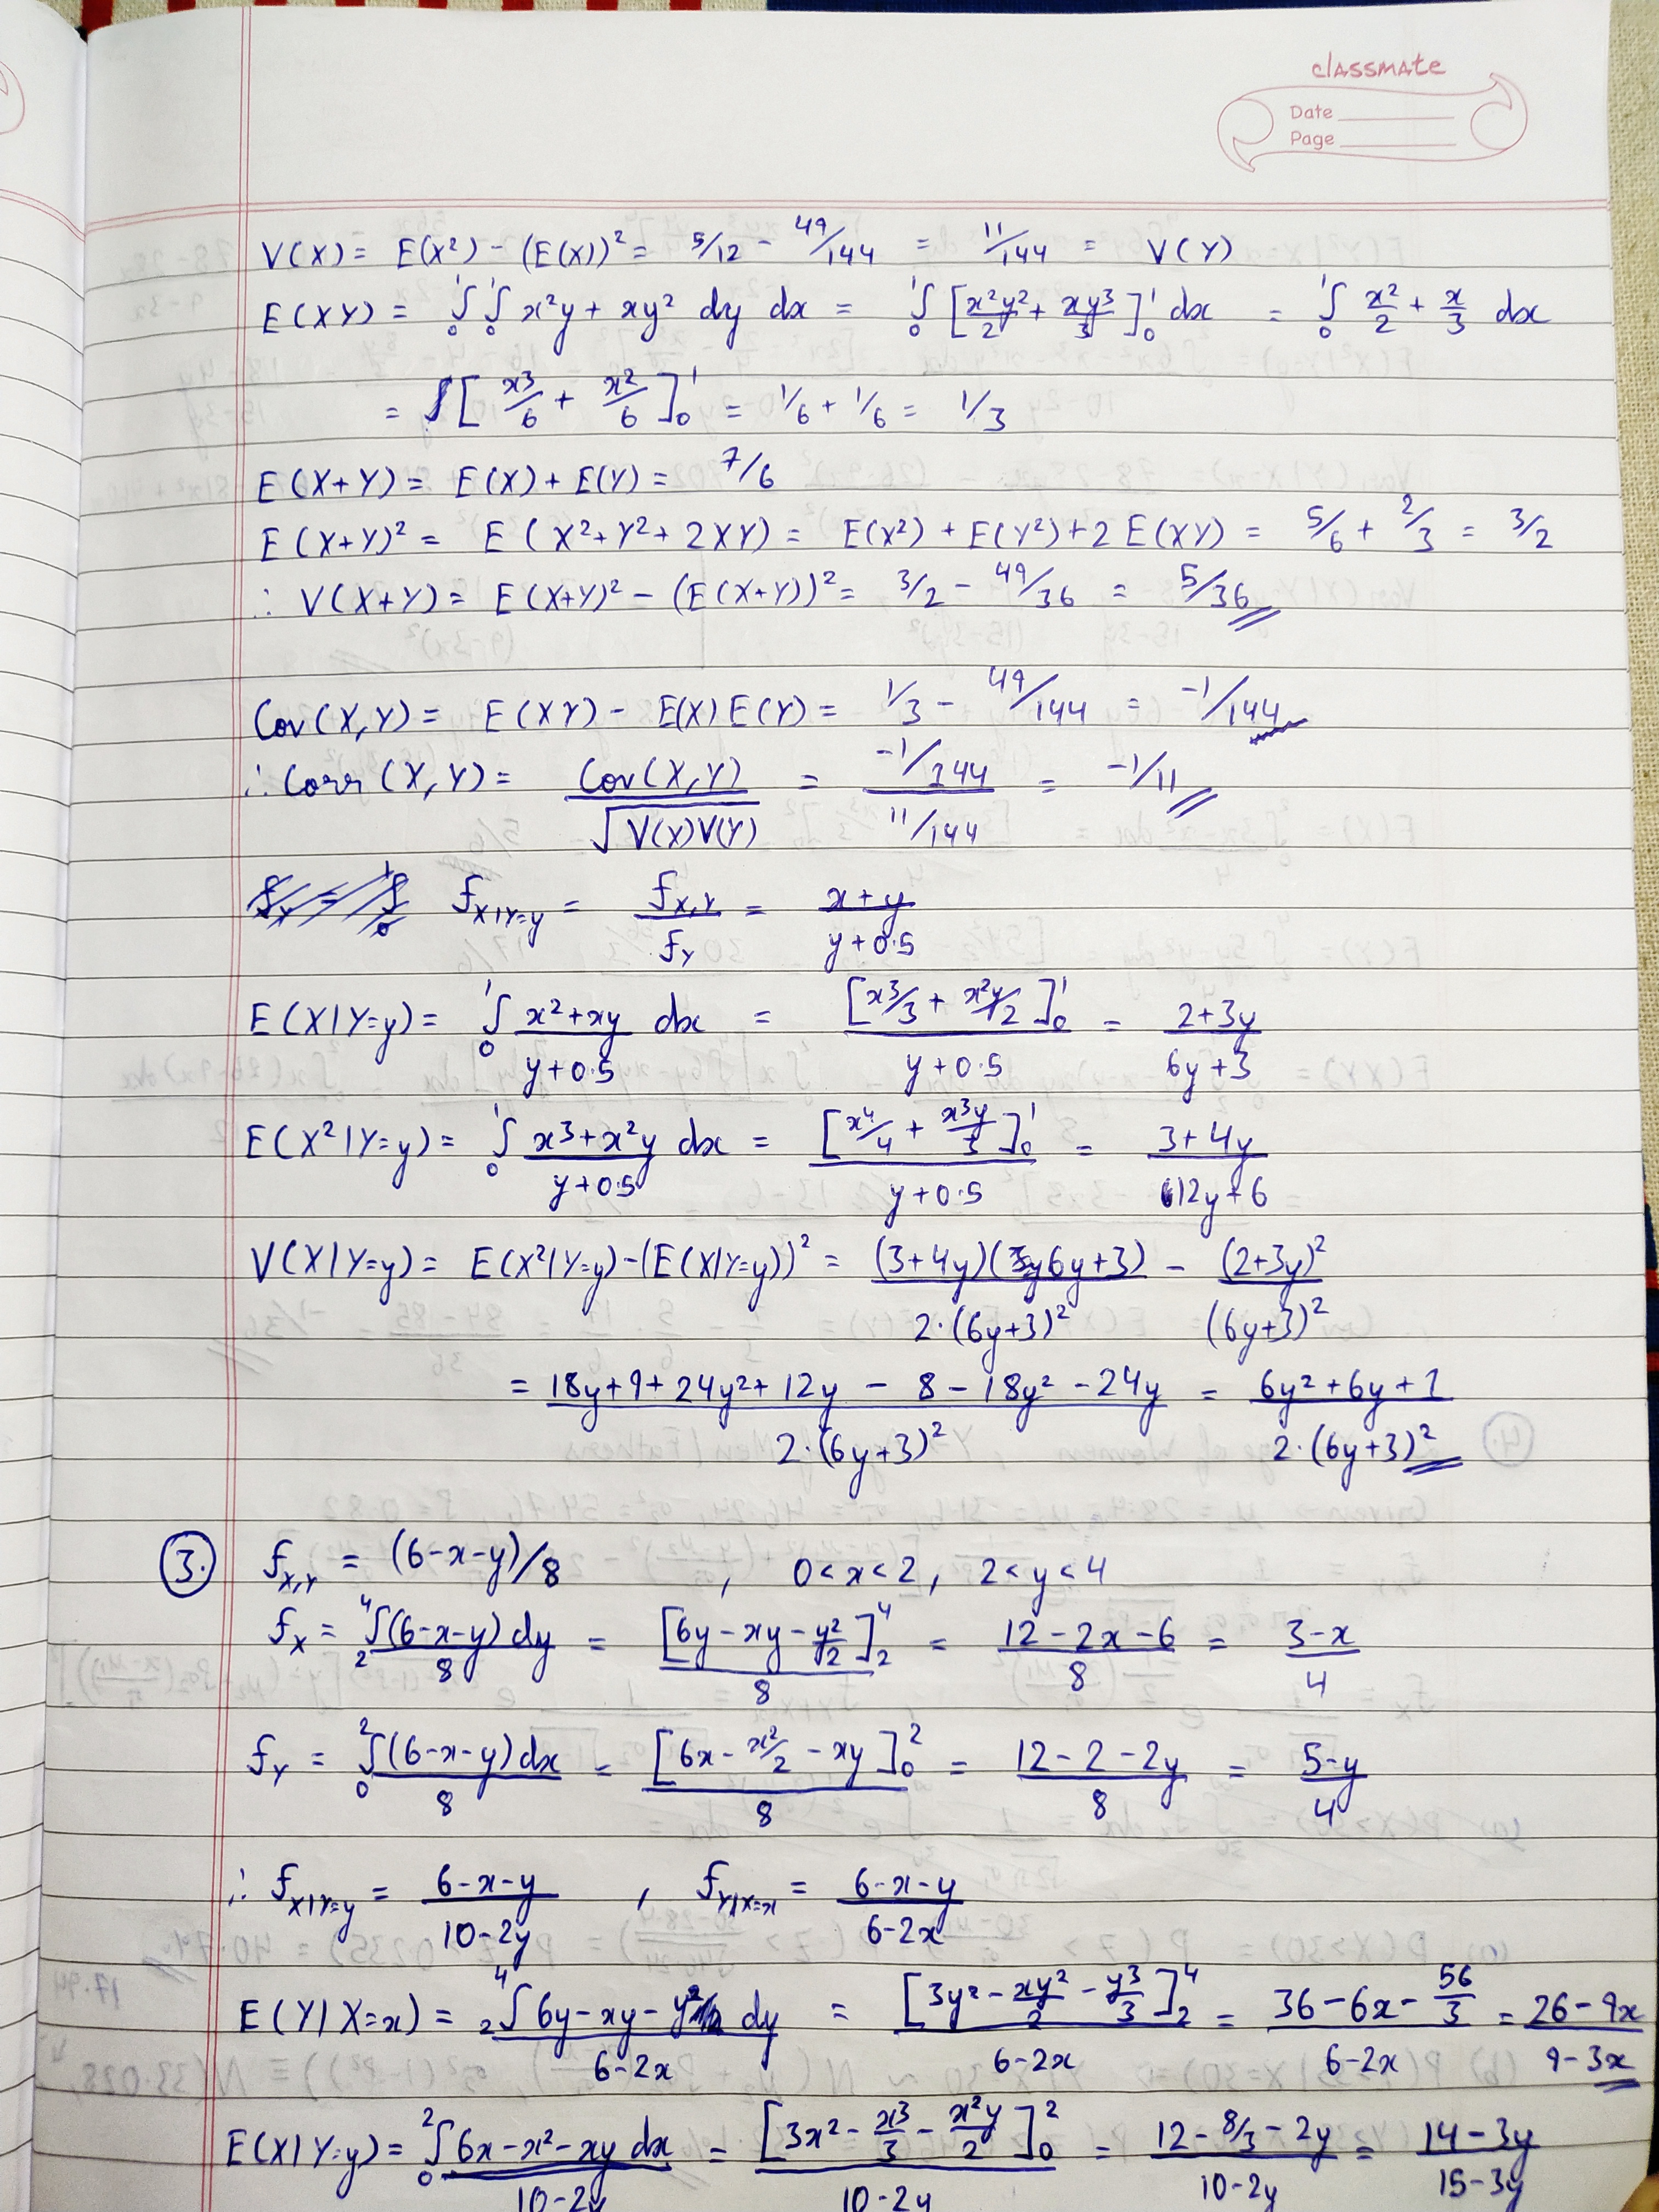 classmate
Date
Page
V(X) = E(X²) - (E(X))² = 5/12 - 49/144 = 11/144 = V(Y)
E(XY) = ₀∫¹ ₀∫¹ x²y + xy² dy dx = ₀∫¹ [x²y²/2 + xy³/3]₀¹ dx = ₀∫¹ x²/2 + x/3 dx
= [x³/6 + x²/6]₀¹ = 1/6 + 1/6 = 1/3
E(X+Y) = E(X) + E(Y) = 7/6
E(X+Y)² = E(X² + Y² + 2XY) = E(X²) + E(Y²) + 2E(XY) = 5/6 + 2/3 = 3/2
∴ V(X+Y) = E(X+Y)² - (E(X+Y))² = 3/2 - 49/36 = 5/36
Cov(X,Y) = E(XY) - E(X)E(Y) = 1/3 - 49/144 = -1/144
∴ Corr(X,Y) = Cov(X,Y)/√V(X)V(Y) = (-1/144)/(11/144) = -1/11
f_X|Y=y = f_X,Y/f_Y = (x+y)/(y+0.5)
E(X|Y=y) = ₀∫¹ (x²+xy)/(y+0.5) dx = [x³/3 + x²y/2]₀¹/(y+0.5) = (2+3y)/(6y+3)
E(X²|Y=y) = ₀∫¹ (x³+x²y)/(y+0.5) dx = [x⁴/4 + x³y/3]₀¹/(y+0.5) = (3+4y)/(12y+6)
V(X|Y=y) = E(X²|Y=y) - (E(X|Y=y))² = (3+4y)(6y+3)/2·(6y+3)² - (2+3y)²/(6y+3)²
= (18y+9+24y²+12y - 8 - 18y² - 24y)/2·(6y+3)² = (6y²+6y+1)/2·(6y+3)²
3. f_X,Y = (6-x-y)/8 , 0<x<2, 2<y<4
f_X = ₂∫⁴ (6-x-y) dy/8 = [6y - xy - y²/2]₂⁴/8 = (12-2x-6)/8 = (3-x)/4
f_Y = ₀∫² (6-x-y) dx/8 = [6x - x²/2 - xy]₀²/8 = (12-2-2y)/8 = (5-y)/4
∴ f_X|Y=y = (6-x-y)/(10-2y) , f_Y|X=x = (6-x-y)/(6-2x)
E(Y|X=x) = ₂∫⁴ (6y-xy-y²) dy/(6-2x) = [3y² - xy²/2 - y³/3]₂⁴/(6-2x) = (36-6x-56/3)/(6-2x) = (26-9x)/(9-3x)
E(X|Y=y) = ₀∫² (6x-x²-xy) dx/(10-2y) = [3x² - x³/3 - x²y/2]₀²/(10-2y) = (12-8/3-2y)/(10-2y) = (14-3y)/(15-3y)